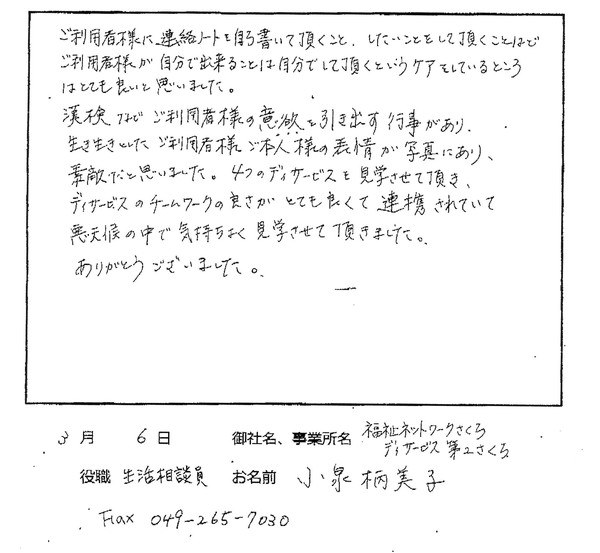 ご利用者様に連絡ノートを自ら書いて頂くこと、したいことをして頂くことなど
ご利用者様が自分で出来ることは自分でして頂くというケアをしているところ
はとても良いと思いました。
漢検などご利用者様の意欲を引き出す行事があり、
生き生きとしたご利用者様ご本人様の表情が写真にあり、
素敵だと思いました。4つのデイサービスを見学させて頂き、
デイサービスのチームワークの良さがとても良くて連携されていて
悪天候の中で気持ちよく見学させて頂きました。
ありがとうございました。
3月 6日 御社名、事業所名 福祉ネットワークさくら
デイサービス第2さくら
役職 生活相談員 お名前 小泉柄美子
Fax 049-265-7030